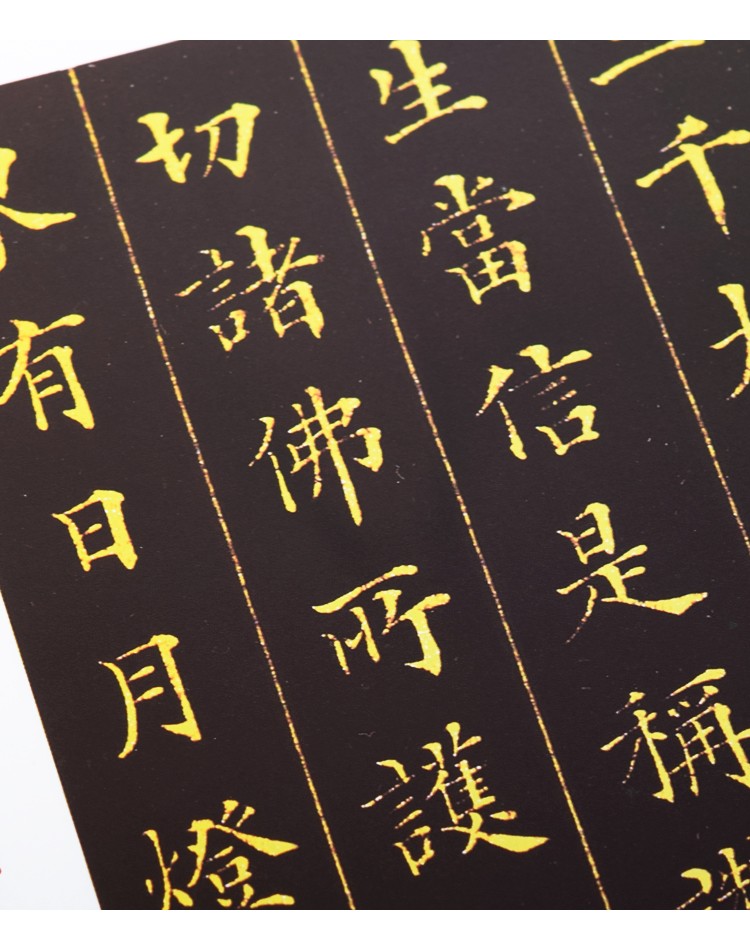 千
生當信是稱
切諸佛所護
有日月燈